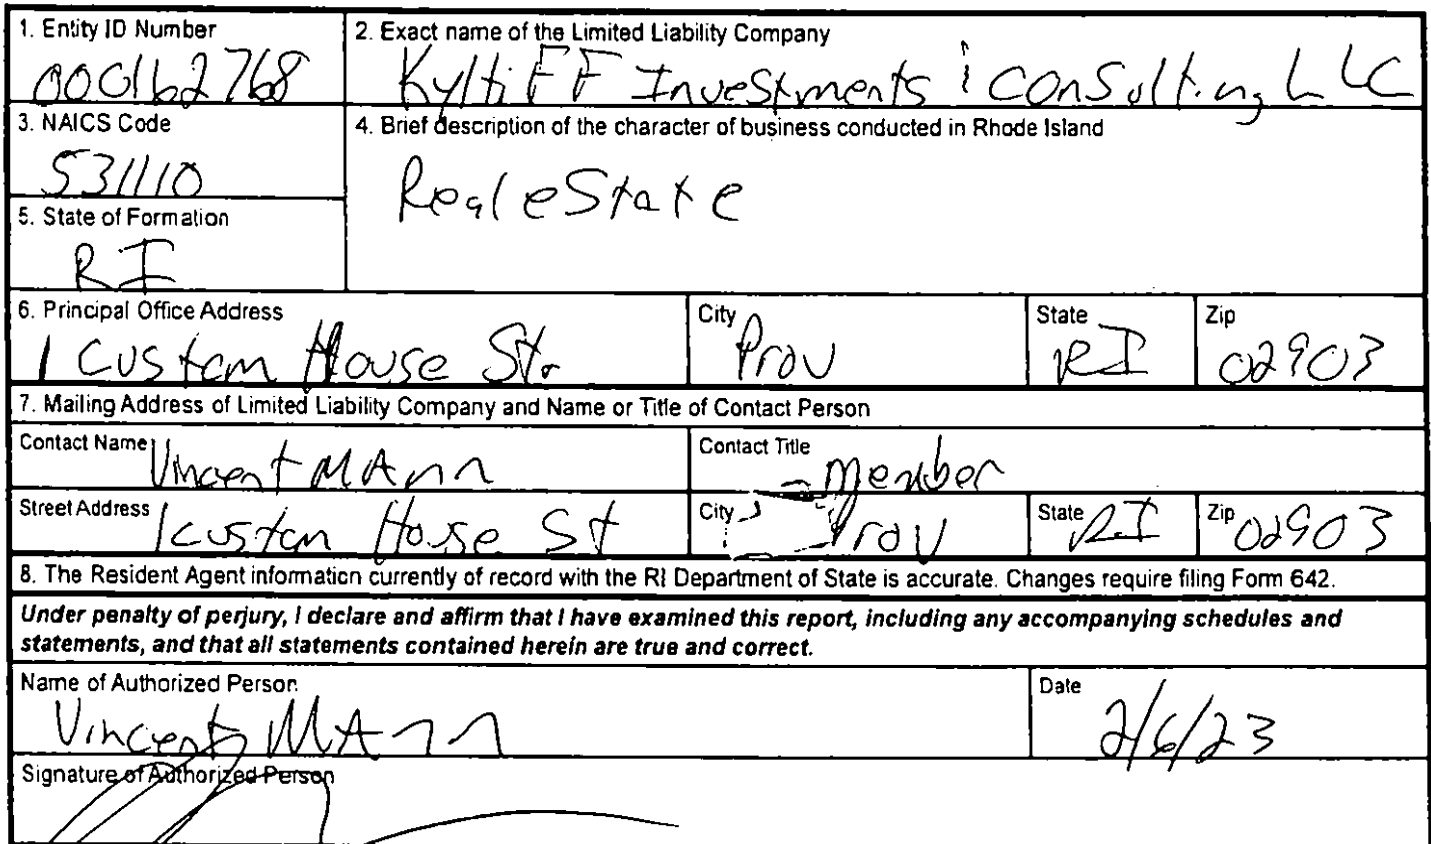 1. Entity ID Number
000162768
2. Exact name of the Limited Liability Company
KyltiFF Investments & consulting LLC
3. NAICS Code
531110
4. Brief description of the character of business conducted in Rhode Island
Real eState
5. State of Formation
RI
6. Principal Office Address
1 Custom House St.
City
Prov
State
RI
Zip
02903
7. Mailing Address of Limited Liability Company and Name or Title of Contact Person
Contact Name
Vincent MAnn
Contact Title
member
Street Address
1 custom House St
City
Prov
State
RI
Zip
02903
8. The Resident Agent information currently of record with the RI Department of State is accurate. Changes require filing Form 642.
Under penalty of perjury, I declare and affirm that I have examined this report, including any accompanying schedules and
statements, and that all statements contained herein are true and correct.
Name of Authorized Person
Vincent MAnn
Date
2/6/23
Signature of Authorized Person